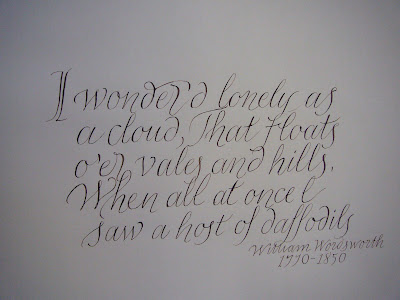 I wonder'd lonely as
a cloud, That floats
o'er vales and hills.
When all at once I
saw a host of daffodils
William Wordsworth
1770-1850